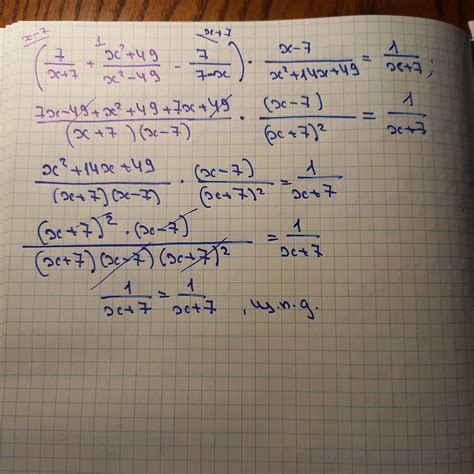 x-7 1 x+7
(7/(x+7) + (x²+49)/(x²-49) - 7/(7-x)) · (x-7)/(x²+14x+49) = 1/(x+7);
(7x-49+x²+49+7x+49)/((x+7)(x-7)) · (x-7)/(x+7)² = 1/(x+7)
(x²+14x+49)/((x+7)(x-7)) · (x-7)/(x+7)² = 1/(x+7)
((x+7)²·(x-7))/((x+7)(x-7)(x+7)²) = 1/(x+7)
1/(x+7) = 1/(x+7), ч.т.д.